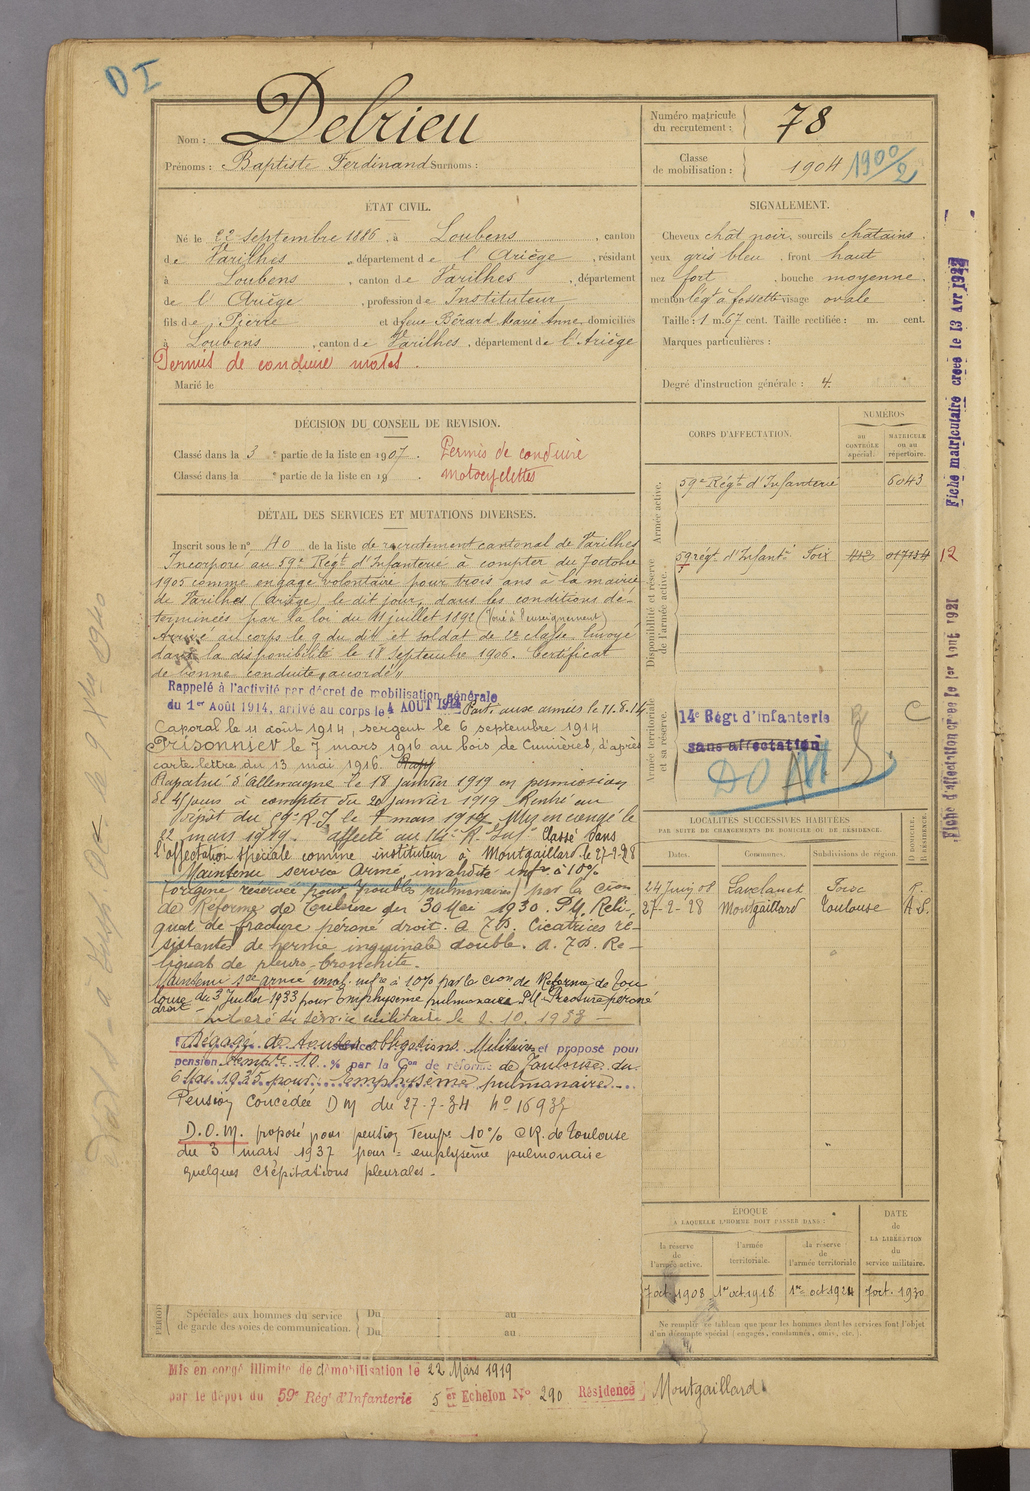 D I
Nom : Delrieu
Prénoms : Baptiste Ferdinand Surnoms :
Numéro matricule du recrutement : 78
Classe de mobilisation : 1904 1900/2
ÉTAT CIVIL.
Né le 22 Septembre 1886, à Loubens, canton
de Varilhes, département de l'Ariège, résidant
à Loubens, canton de Varilhes, département
de l'Ariège, profession de Instituteur
fils de Pierre et de feue Bérard Marie Anne, domiciliés
à Loubens, canton de Varilhes, département de l'Ariège
Permis de conduire motos.
Marié le
SIGNALEMENT.
Cheveux chat noir, sourcils chatains.
yeux gris bleu, front haut
nez fort, bouche moyenne
menton légt à fossette visage ovale
Taille : 1 m. 67 cent. Taille rectifiée : m. cent.
Marques particulières :
Degré d'instruction générale : 4.
DÉCISION DU CONSEIL DE REVISION.
Classé dans la 3e partie de la liste en 1907. Permis de conduire
Classé dans la e partie de la liste en 19 . motocyclettes
DÉTAIL DES SERVICES ET MUTATIONS DIVERSES.
Inscrit sous le n° 40 de la liste de recrutement cantonal de Varilhes
Incorporé au 59e Régt d'Infanterie à compter du 7 octobre
1905 comme engagé volontaire pour trois ans à la mairie
de Varilhes (Ariège) le dit jour, dans les conditions dé-
terminées par la loi du 11 juillet 1892 (Voué à l'enseignement)
Arrivé au corps le 9 du dit et soldat de 2e classe. Envoyé
dans la disponibilité le 18 Septembre 1906. Certificat
de bonne conduite "accordé"
Rappelé à l'activité par décret de mobilisation générale
du 1er Août 1914, arrivé au corps le 4 AOUT 1914 Parti aux armées le 11.8.14
Caporal le 11 août 1914, sergent le 6 septembre 1914
Prisonnier le 7 mars 1916 au bois de Cumières, d'après
carte-lettre du 13 mai 1916. Rap
Rapatrié d'Allemagne le 18 janvier 1919 en permission
de 45 jours à compter du 20 janvier 1919 Rentré au
dépôt du 59e R.I. le 7 mars 1919. Mis en congé le
22 mars 1919. affecté au 14e R. Inf. Classé dans
l'affectation spéciale comme instituteur à Montgaillard le 27-2-28
Maintenu service armé, invalidité infre à 10%
(origine réservée pour troubles pulmonaires) par la Cion
de Réforme de Toulouse du 30 Mai 1930. P.M. Reli-
quat de fracture péroné droit. A.T.D. Cicatrices ré-
sistantes de hernie inguinale double. A.T.D. Re-
liquat de pleuro-bronchite.
Maintenu sce armé inval. infre à 10% par la Cion de Réforme de Tou
louse du 3 Juillet 1933 pour Emphysème pulmonaire P.M. Fracture péroné
droit - Libéré du service militaire le 2.10.1933 -
Dégagé de toutes obligations Militaires et proposé pour
pension Tempre 10 % par la Con de réforme de Toulouse du
6 1935 pour Emphysème pulmonaire
Pension Concedée D M du 27-7-34 N° 16937
D.O.M. proposé pour pension Tempe 10% C.R. de Toulouse
du 3 mars 1937 pour = emphysème pulmonaire
quelques crépitations pleurales -
CORPS D'AFFECTATION.
NUMÉROS
AU CONTRÔLE spécial.
MATRICULE ou au répertoire.
Armée active.
59e Régt d'Infanterie 6043
Disponibilité et réserve de l'armée active.
59 régt d'Infantie Foix 412 017134 12
Armée territoriale et sa réserve.
14e Régt d'Infanterie C
sans affectation
DO
LOCALITÉS SUCCESSIVES HABITÉES
PAR SUITE DE CHANGEMENTS DE DOMICILE OU DE RÉSIDENCE.
Dates. Communes. Subdivisions de région. D. DOMICILE. R. RÉSIDENCE.
24 Juin 08 Lavelanet Foix R.
27-2-28 Montgaillard Toulouse
ÉPOQUE
A LAQUELLE L'HOMME DOIT PASSER DANS :
la réserve de l'armée active.
l'armée territoriale.
la réserve de l'armée territoriale
DATE de LA LIBÉRATION du service militaire.
7 oct. 1908 1er oct 1918 1er oct 1924 7 oct. 1930
Ne remplir ce tableau que pour les hommes dont les services font l'objet
d'un décompte spécial (engagés, condamnés, omis, etc.).
Spéciales aux hommes du service
de garde des voies de communication.
Du au
Du au
Mis en congé illimité de démobilisation le 22 Mars 1919
par le dépot du 59e Régt d'Infanterie 5er Echelon N° 290 Résidence Montgaillard
Fiche matriculaire créée le 13 Avr 1927
Fiche d'affectation créée le 1er Aout 1921